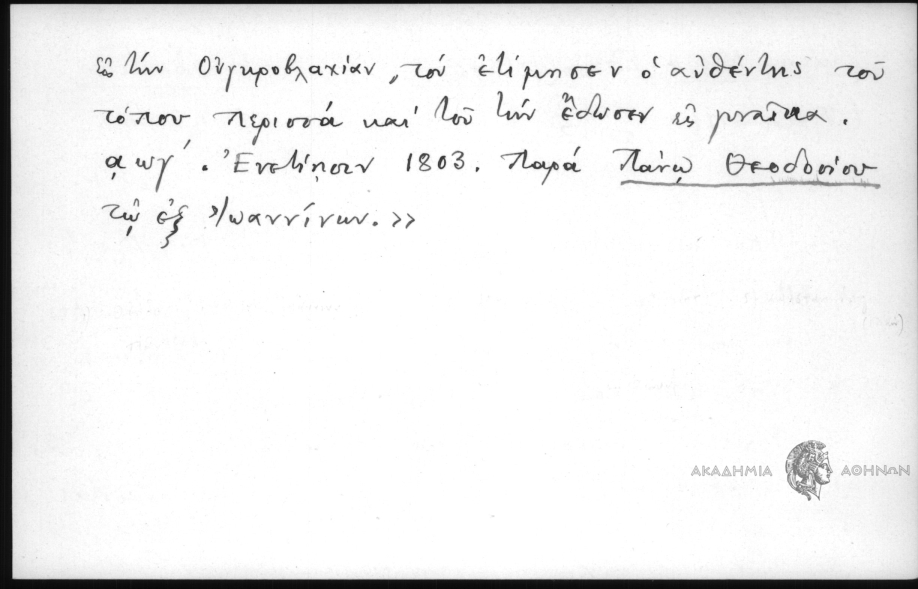 εἰς τήν Οὐγκροβλαχίαν, τόν ἐτίμησεν ὁ αὐθέντης τοῦ
τόπου περισσά καί τοῦ τήν ἔδωσεν εἰς γυναῖκα.
αωγ´. Ἐνετίῃσιν 1803. Παρά Πάνῳ Θεοδοσίου
τῷ ἐξ Ἰωαννίνων.»
ΑΚΑΔΗΜΙΑ ΑΘΗΝΩΝ